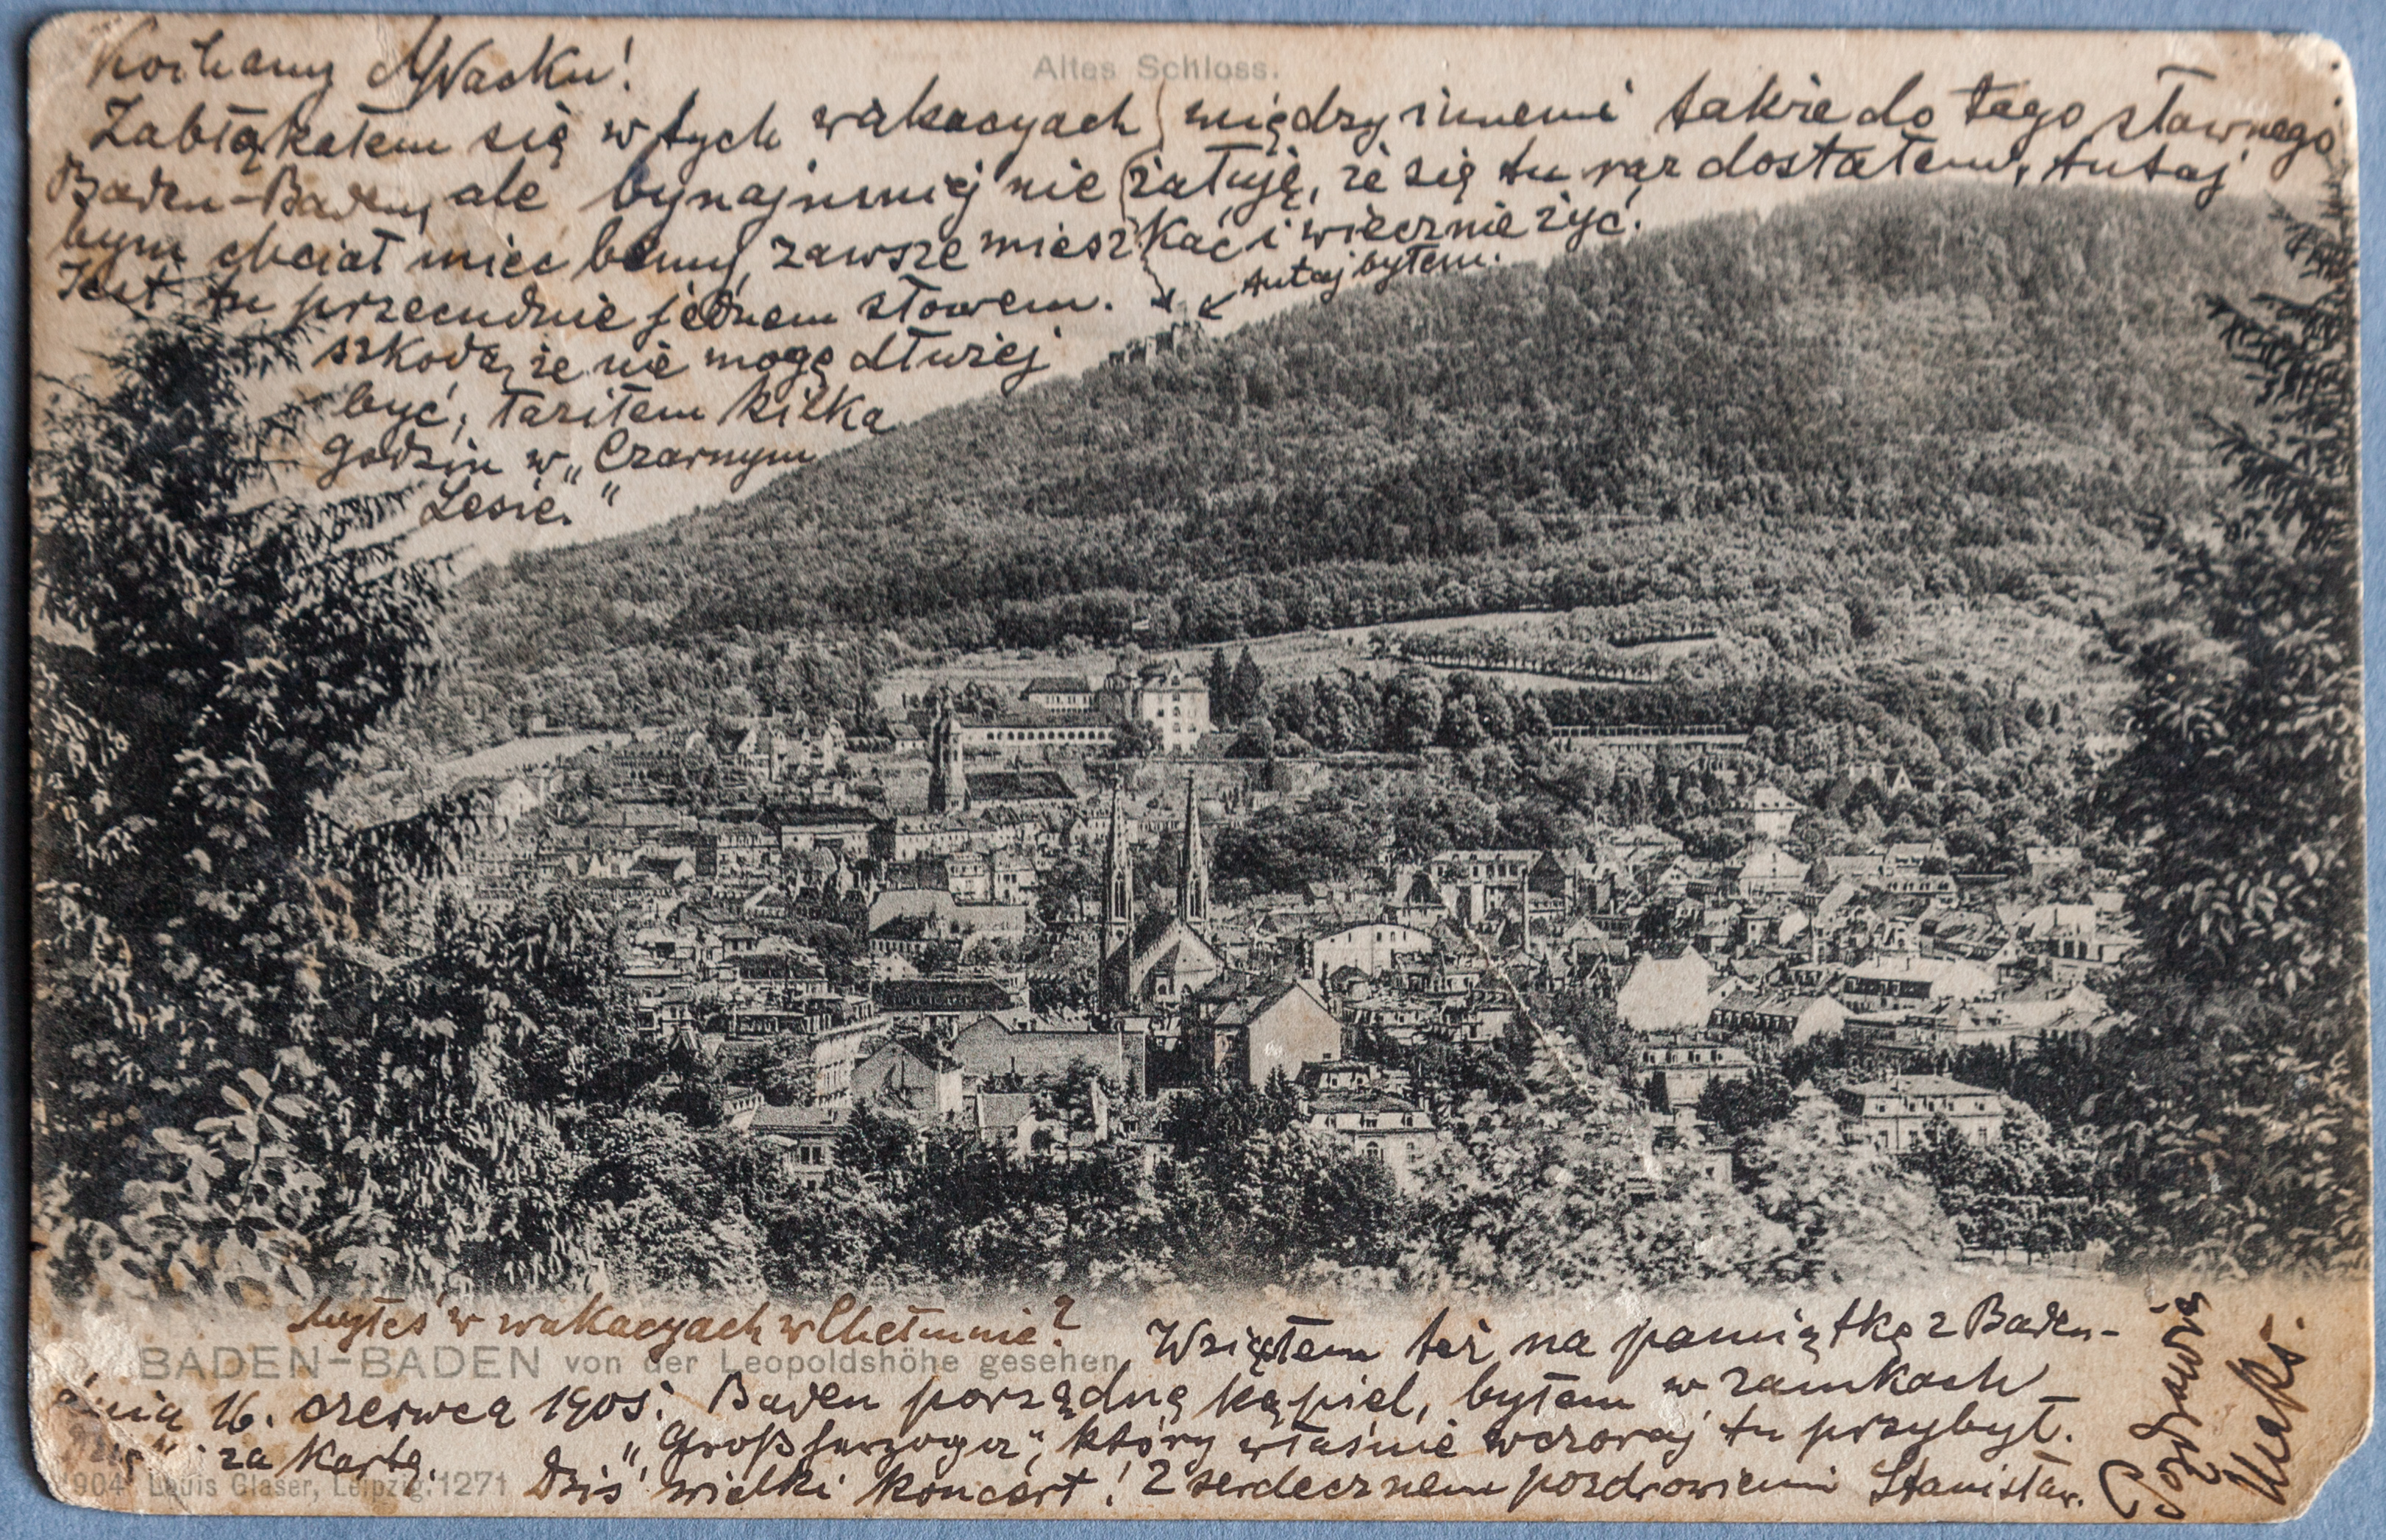 Kochany Wacku!
Altes Schloss.
Zabłąkałem się w tych wakacyach między innemi także do tego sławnego
Baden-Baden, ale bynajmniej nie żałuję, że się tu raz dostałem, tutaj
bym chciał mieć zawsze mieszkać i wiecznie żyć.
Jest tu przecudnie jednem słowem.
tutaj byłem.
szkoda, że nie mogę dłużej
być, łaziłem kilka
godzin w „Czarnym
Lesie."
byłeś w wakacyach w Chełmnie?
BADEN-BADEN von der Leopoldshöhe gesehen
Wziąłem też na pamiątkę z Baden-
dnia 16. czerwca 1905. Baden porządną kąpiel, byłem w zamkach
za kartę. „Großherzoga", który właśnie wczoraj tu przybył.
904 Louis Glaser, Leipzig. 1271
Dziś wielki koncert! Z serdecznem pozdrowieniem Stanisław.
Pozdrawia
Maks.